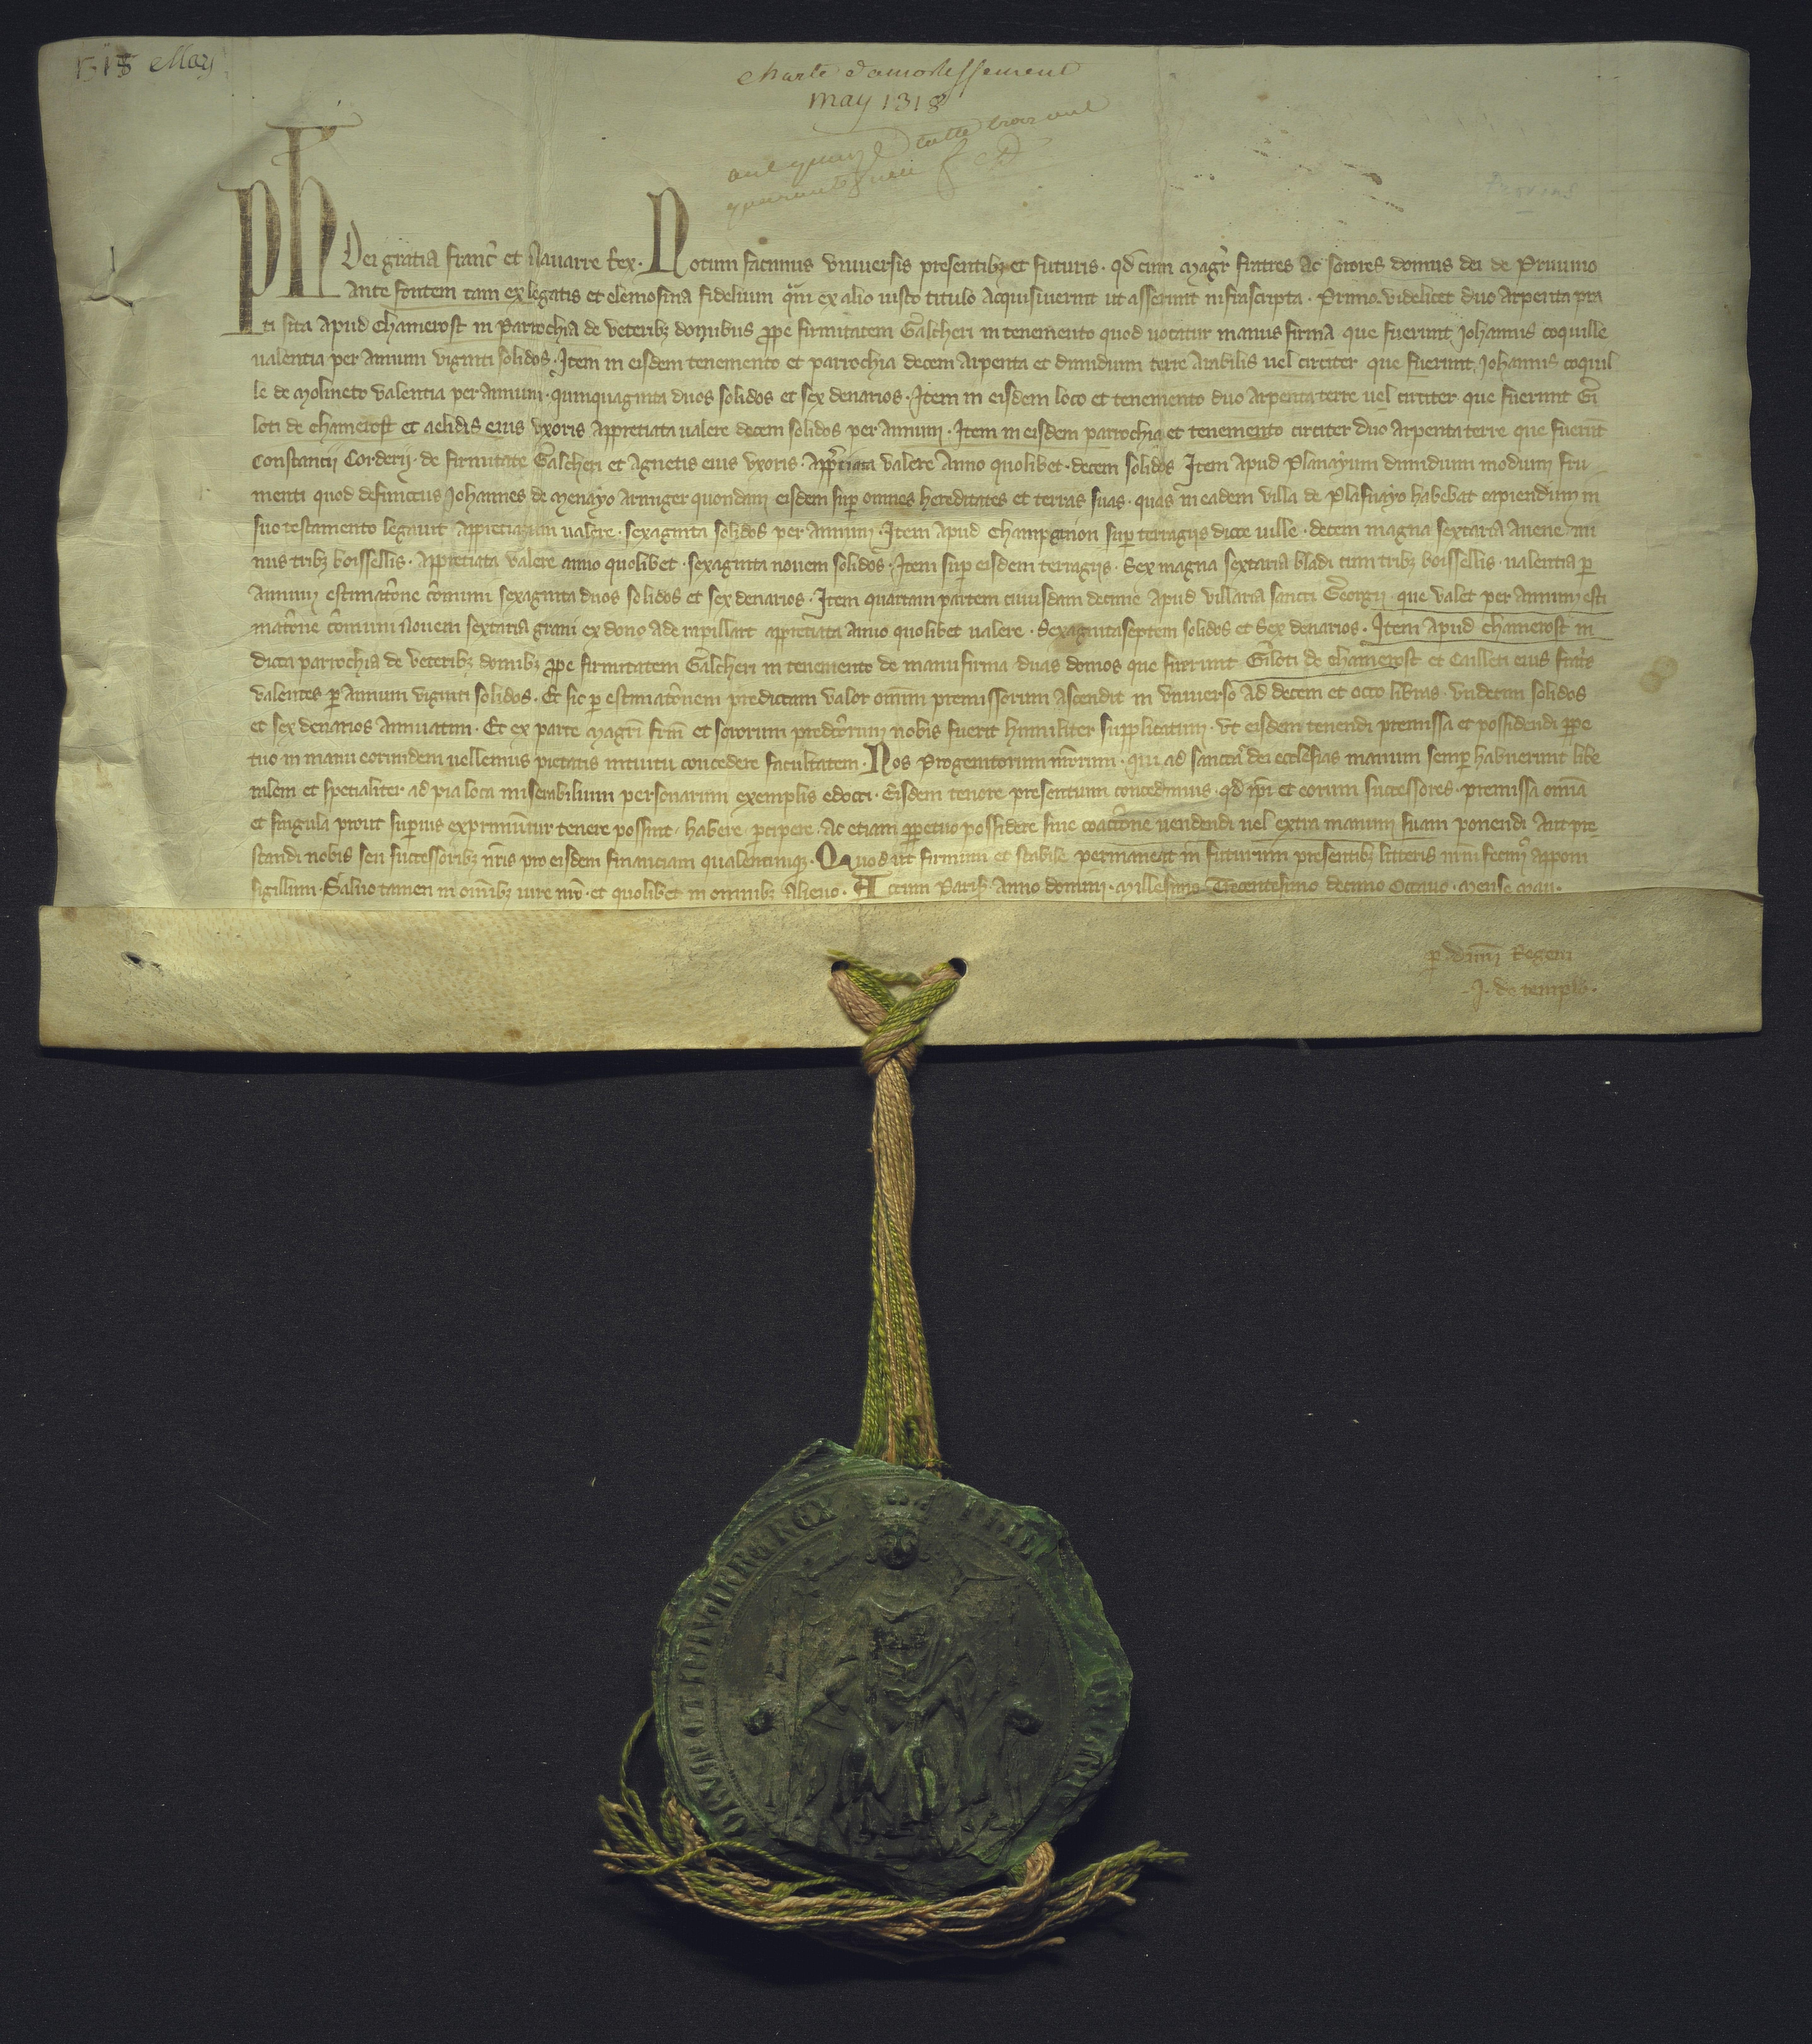 1318 May
Charte d'amortissement
may 1318
Ph
Dei gratia Franc̄ et Navarre Rex. Notum facimus universis presentibꝫ et futuris. qđ cum Magr̄ fratres ac sorores domus dei de Pruvino
Ante fontem tam ex legatis et elemosina fidelium qͣm ex alio iusto titulo Acquisiverint ut asserunt infrascripta. Primo. videlicet duo Arpenta pra
ti sita Apud Chamerost in Parrochia de veteribꝫ domibus ꝓpe firmitatem Galcheri in tenemento quod vocatur manus firma que fuerunt Johannis coquille
valentia per Annum viginti solidos. Item in eisdem tenemento et parrochia decem Arpenta et dimidium terre Arabilis vel circiter que fuerunt Johannis coquil
le de Molineto valentia per Annum. quinquaginta duos solidos et sex denarios. Item in eisdem loco et tenemento duo Arpenta terre vel circiter que fuerunt Gi
loti de chamerost et aelidis eius uxoris Appretiata valere decem solidos per Annum. Item in eisdem parrochia et tenemento circiter duo Arpenta terre que fuerūt
Constancij Corderij. de firmitate Galcheri et Agnetis eius uxoris. Appreciata valere Anno quolibet. decem solidos Item Apud Planayum dimidium modium fru
menti quod defunctus Johannes de Menayo Armiger quondam eisdem suꝑ omnes hereditates et terras suas. quas in eadem villa de Plasnayo habebat capiendum in
suo testamento legavit Appretiatum valere. sexaginta solidos per Annum. Item Apud Champginon suꝑ terragijs dicte ville. decem magna sextaria Avene mi
nus tribꝫ boissellis. Appretiata valere anno quolibet. sexaginta novem solidos. Item suꝑ eisdem terragijs. Sex magna sextaria bladi cum tribꝫ boissellis. valentia ꝑ
Annum estimatōne cōmuni sexaginta duos solidos et sex denarios. Item quartam partem cuiusdam decime Apud villaria sancti Georgij. que valet per Annum esti
matōne cōmuni Novem sextaria grani ex dono Ade rapillart appretiata Anno quolibet valere. Sexagintaseptem solidos et Sex denarios. Item Apud chamerost in
dicta parrochia de veteribꝫ domibꝫ ꝓpe firmitatem Galcheri in tenemento de manu firma duas domos que fuerunt Giloti de chamerost et Cailleti eius frat̄s
valentes ꝑ Annum viginti solidos. Et sic ꝑ estimatōnem predictam valor omīm premissorum Ascendit in universo Ad decem et octo libras. undecim solidos
et sex denarios Annuatim. Et ex parte Magrī frm̄ et sororum predc̄orum nobis fuerit humiliter supplicatum. ut eisdem tenendi premissa et possidendi ꝓpe
tuo in manu eorumdem vellemus pietatis intuitu concedere facultatem. Nos Progenitorum nr̄orum. qui ad sancta dei ecclesias manum semꝑ habuerunt libe
ralem et specialiter ad pia loca miserabilium personarum exemplis edocti. Eisdem tenore presentium concedimus. qđ ipī et eorum successores. premissa omīa
et singula prout suꝑius exprimūtur tenere possint. habere. ꝑcipere. Ac etiam ꝑpetuo possidere sine coactōne vendendi vel extra manum suam ponendi Aut pre
standi nobis seu successoribꝫ nr̄is pro eisdem financiam qualemcumqꝫ. Quod ut firmum et stabile permaneat in futurum presentibꝫ litteris nr̄m fecimꝰ apponi
sigillum. Salvo tamen in omībꝫ iure nr̄o. et quolibet in omnibꝫ Alieno. Actum Paris̄ Anno domini. Millesimo Trecentesimo decimo Octavo. Mense Maii.
ꝑ dominū Regem
J. de templo.